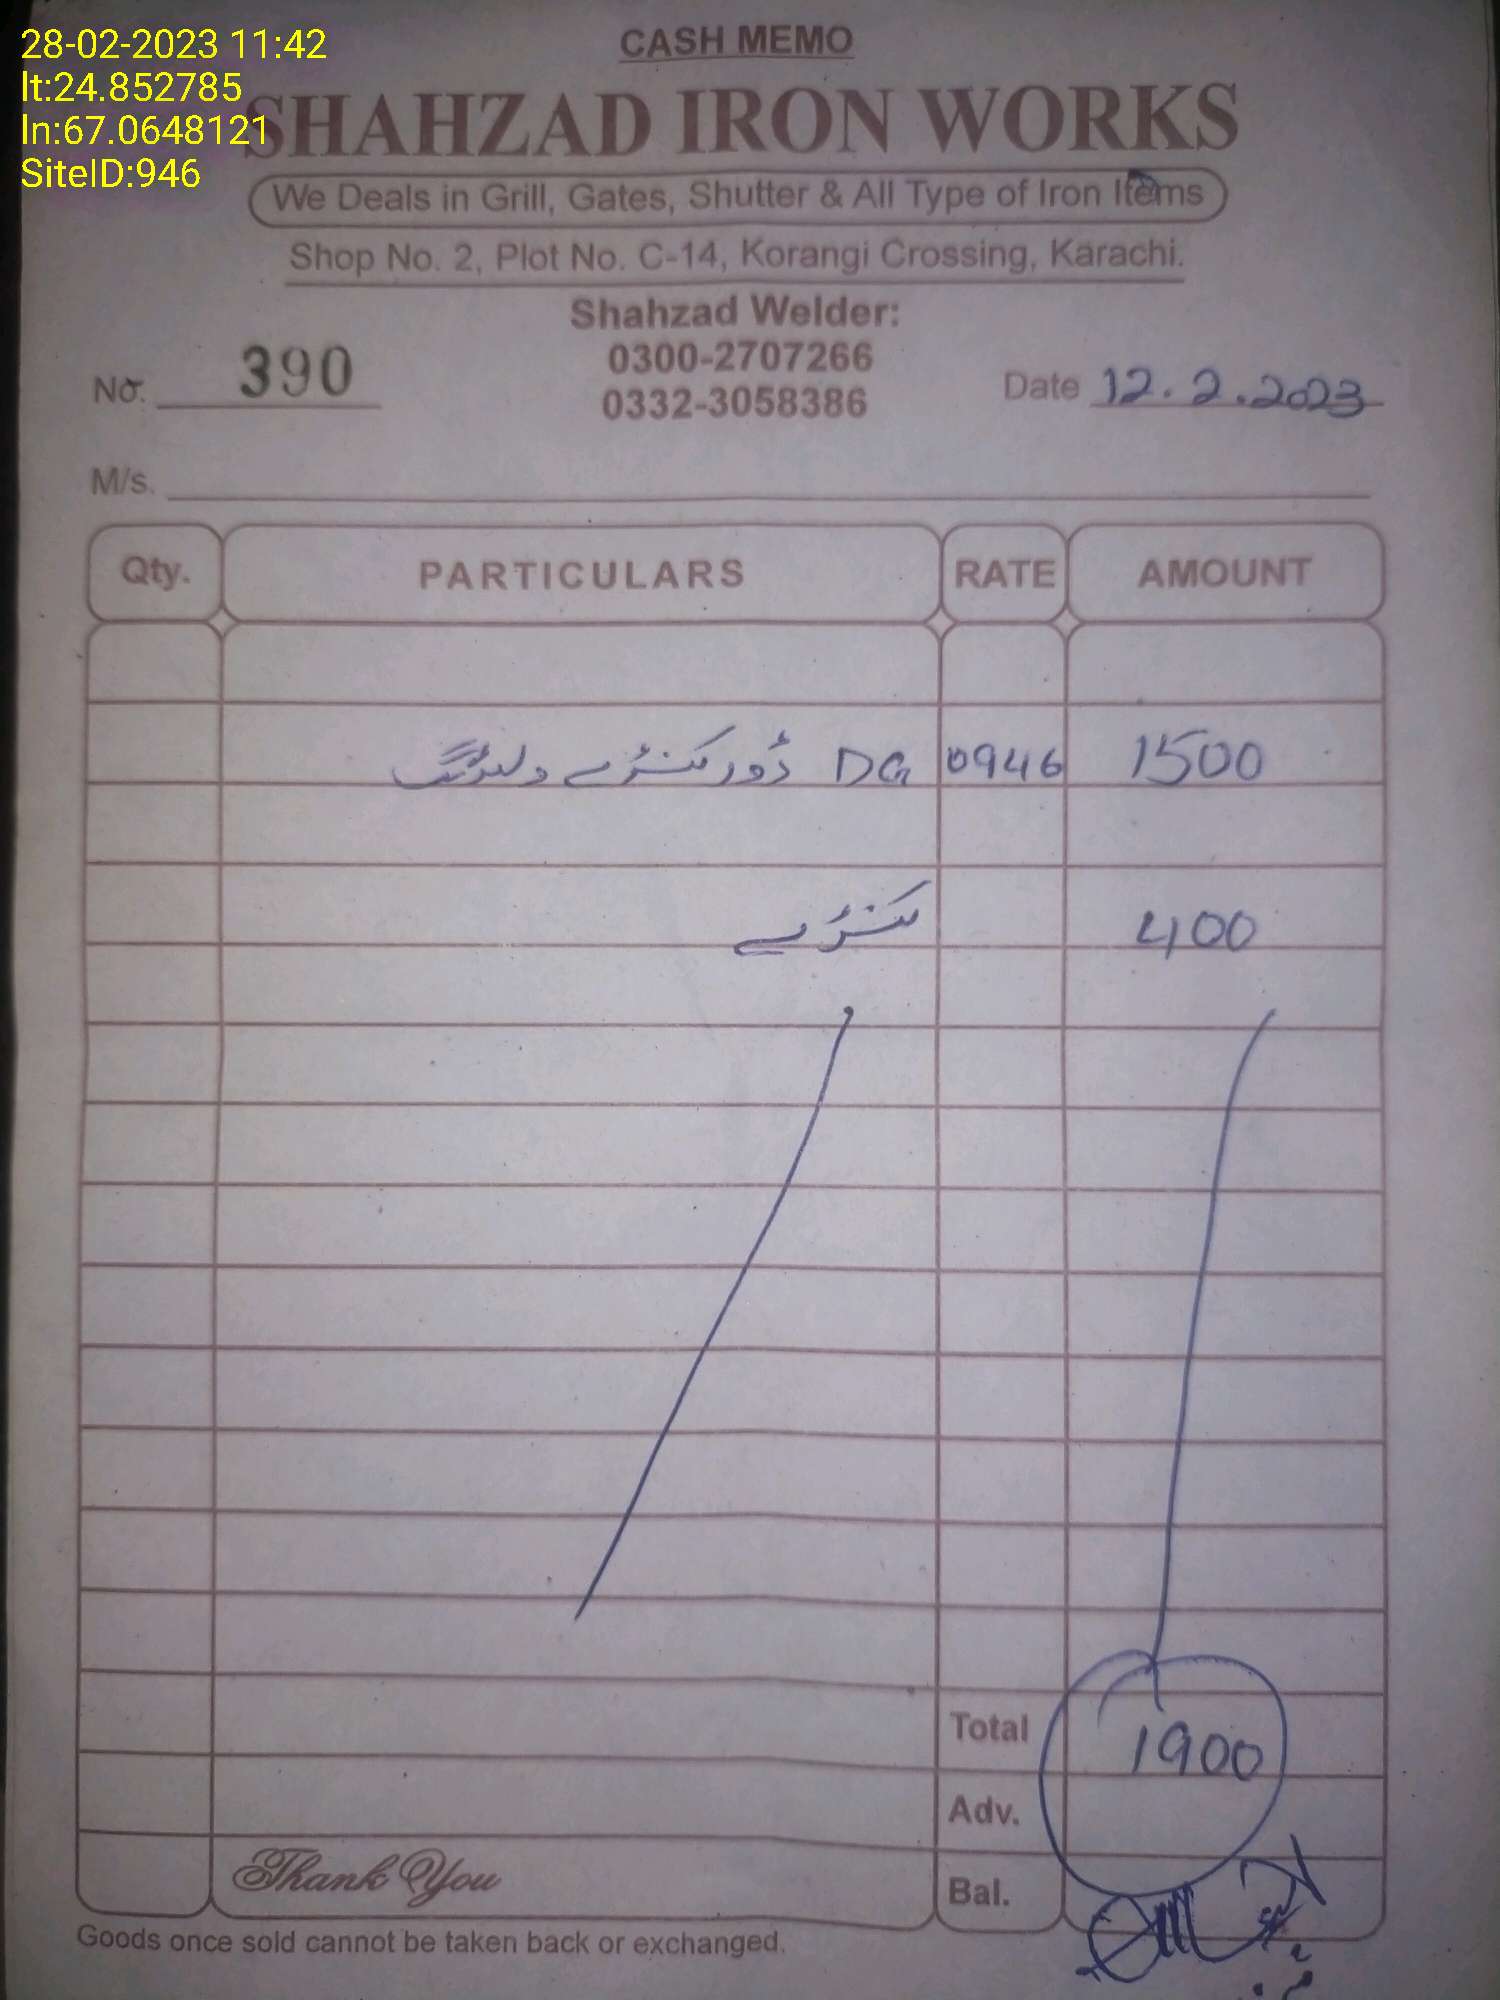 28-02-2023 11:42
lt:24.852785
ln:67.0648121
SiteID:946
CASH MEMO
SHAHZAD IRON WORKS
We Deals in Grill, Gates, Shutter & All Type of Iron Items
Shop No. 2, Plot No. C-14, Korangi Crossing, Karachi.
Shahzad Welder:
0300-2707266
0332-3058386
No. 390
Date 12.2.2023
M/s.
Qty. PARTICULARS RATE AMOUNT
DG ڈور کنڑے ولڈنگ 0946 1500
کنڑے 400
Total 1900
Adv.
Bal.
Thank You
Goods once sold cannot be taken back or exchanged.